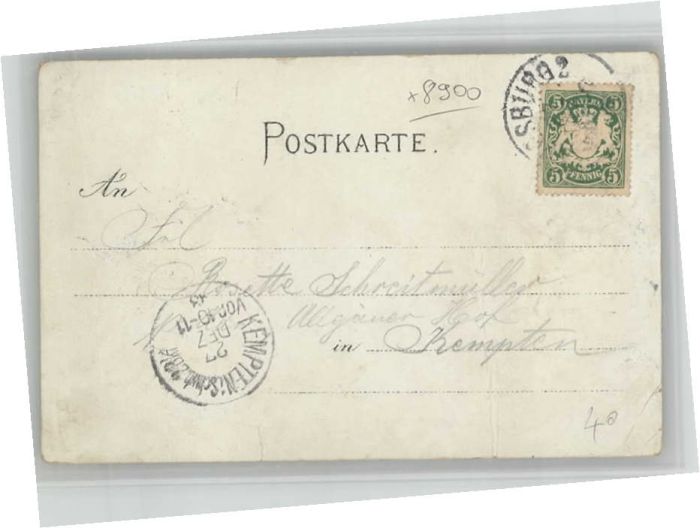 +8900
SBURG 2
5 BAYERN 5
5 PFENNIG 5
POSTKARTE.
An
Frl
Babette Schreitmüller
Allgäuer Hof
in Kempten
KEMPTEN
27
DEZ
VOR 10-11
40